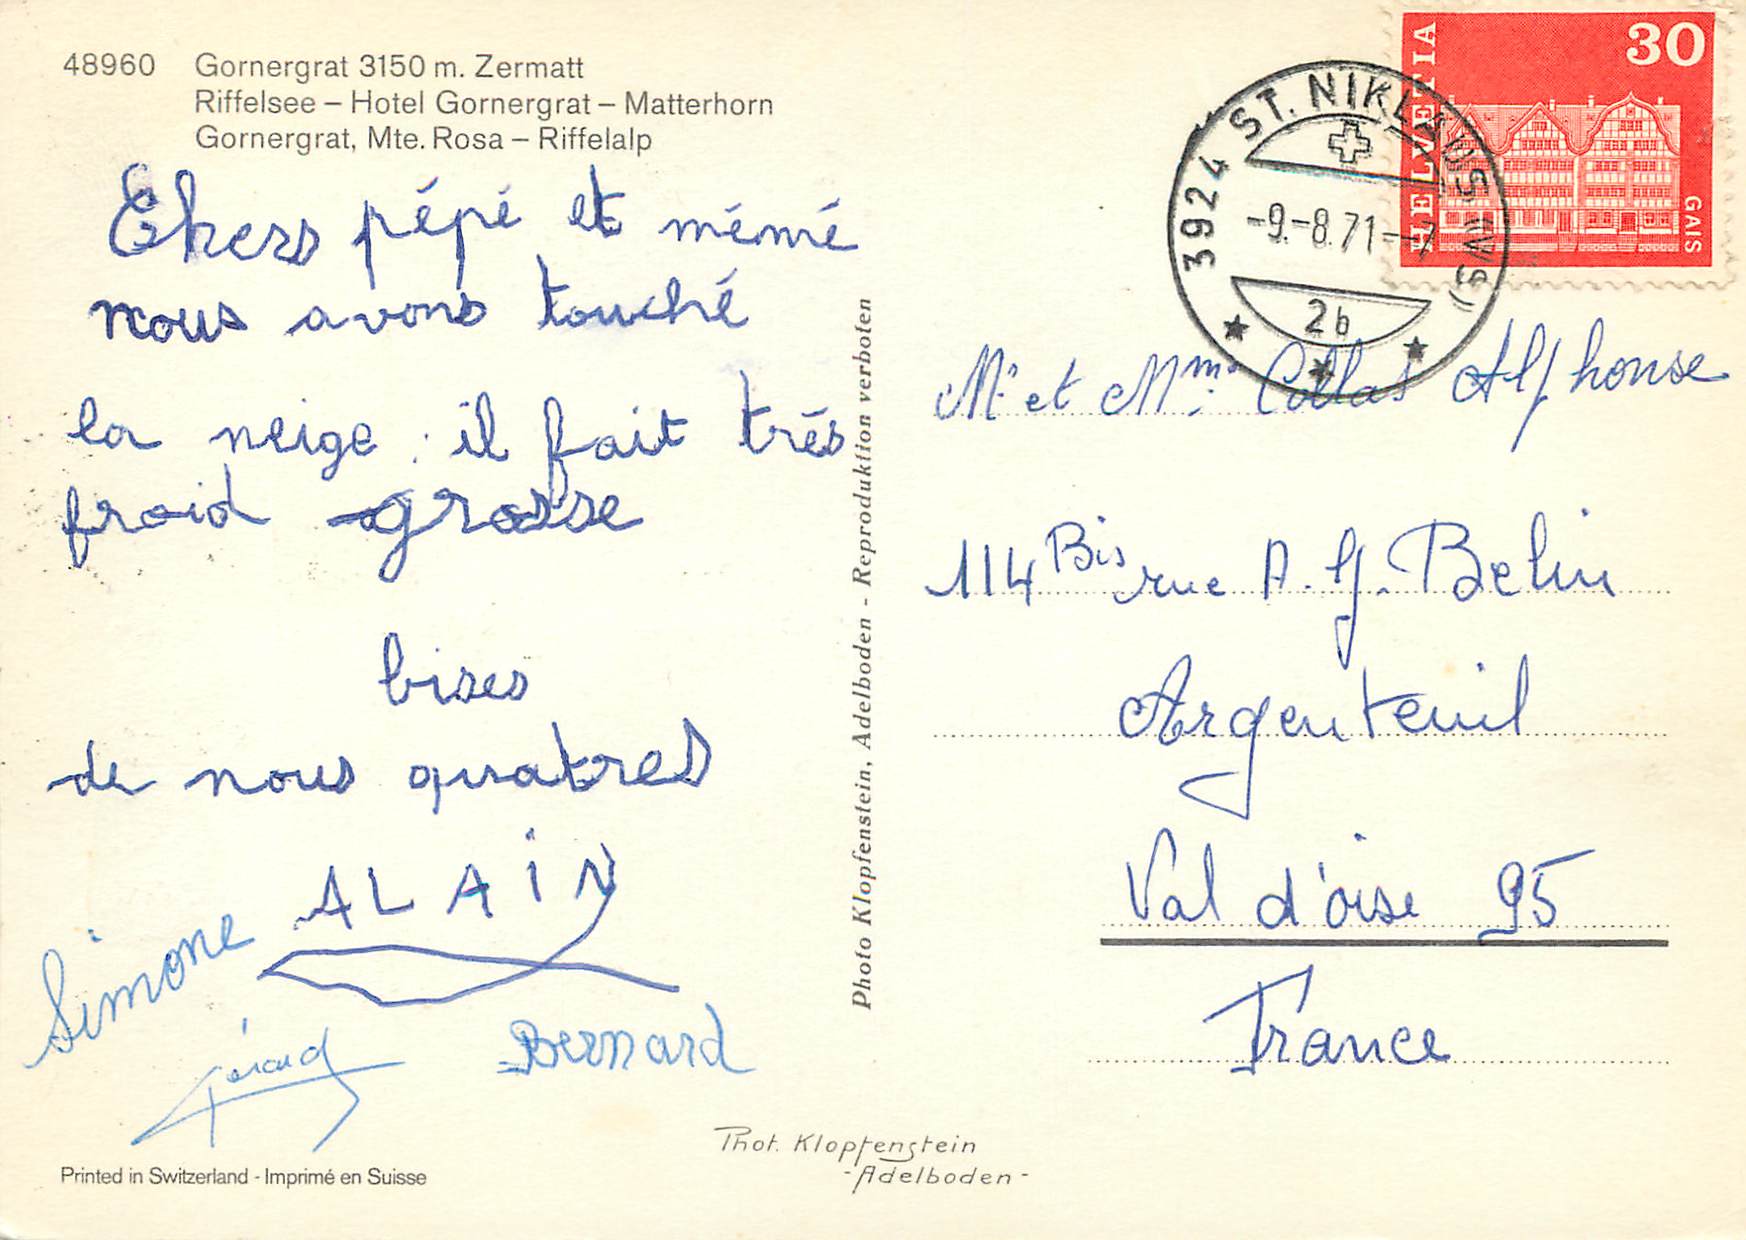 48960 Gornergrat 3150 m. Zermatt
Riffelsee – Hotel Gornergrat – Matterhorn
Gornergrat, Mte. Rosa – Riffelalp
Chers pépé et mémé
nous avons touché
la neige . il fait trés
froid grosse
bises
de nous quatres
ALAiN
Simone
Gérard
Bernard
Printed in Switzerland - Imprimé en Suisse
Photo Klopfenstein, Adelboden - Reproduktion verboten
Phot. Klopfenstein
- Adelboden -
HELVETIA
30
GAIS
3924 ST. NIKLAUS (VS)
-9.-8.71--7
2b
Mr et Mme Collas Alphonse
114 Bis rue A. G. Belin
Argenteuil
Val d'oise 95
France